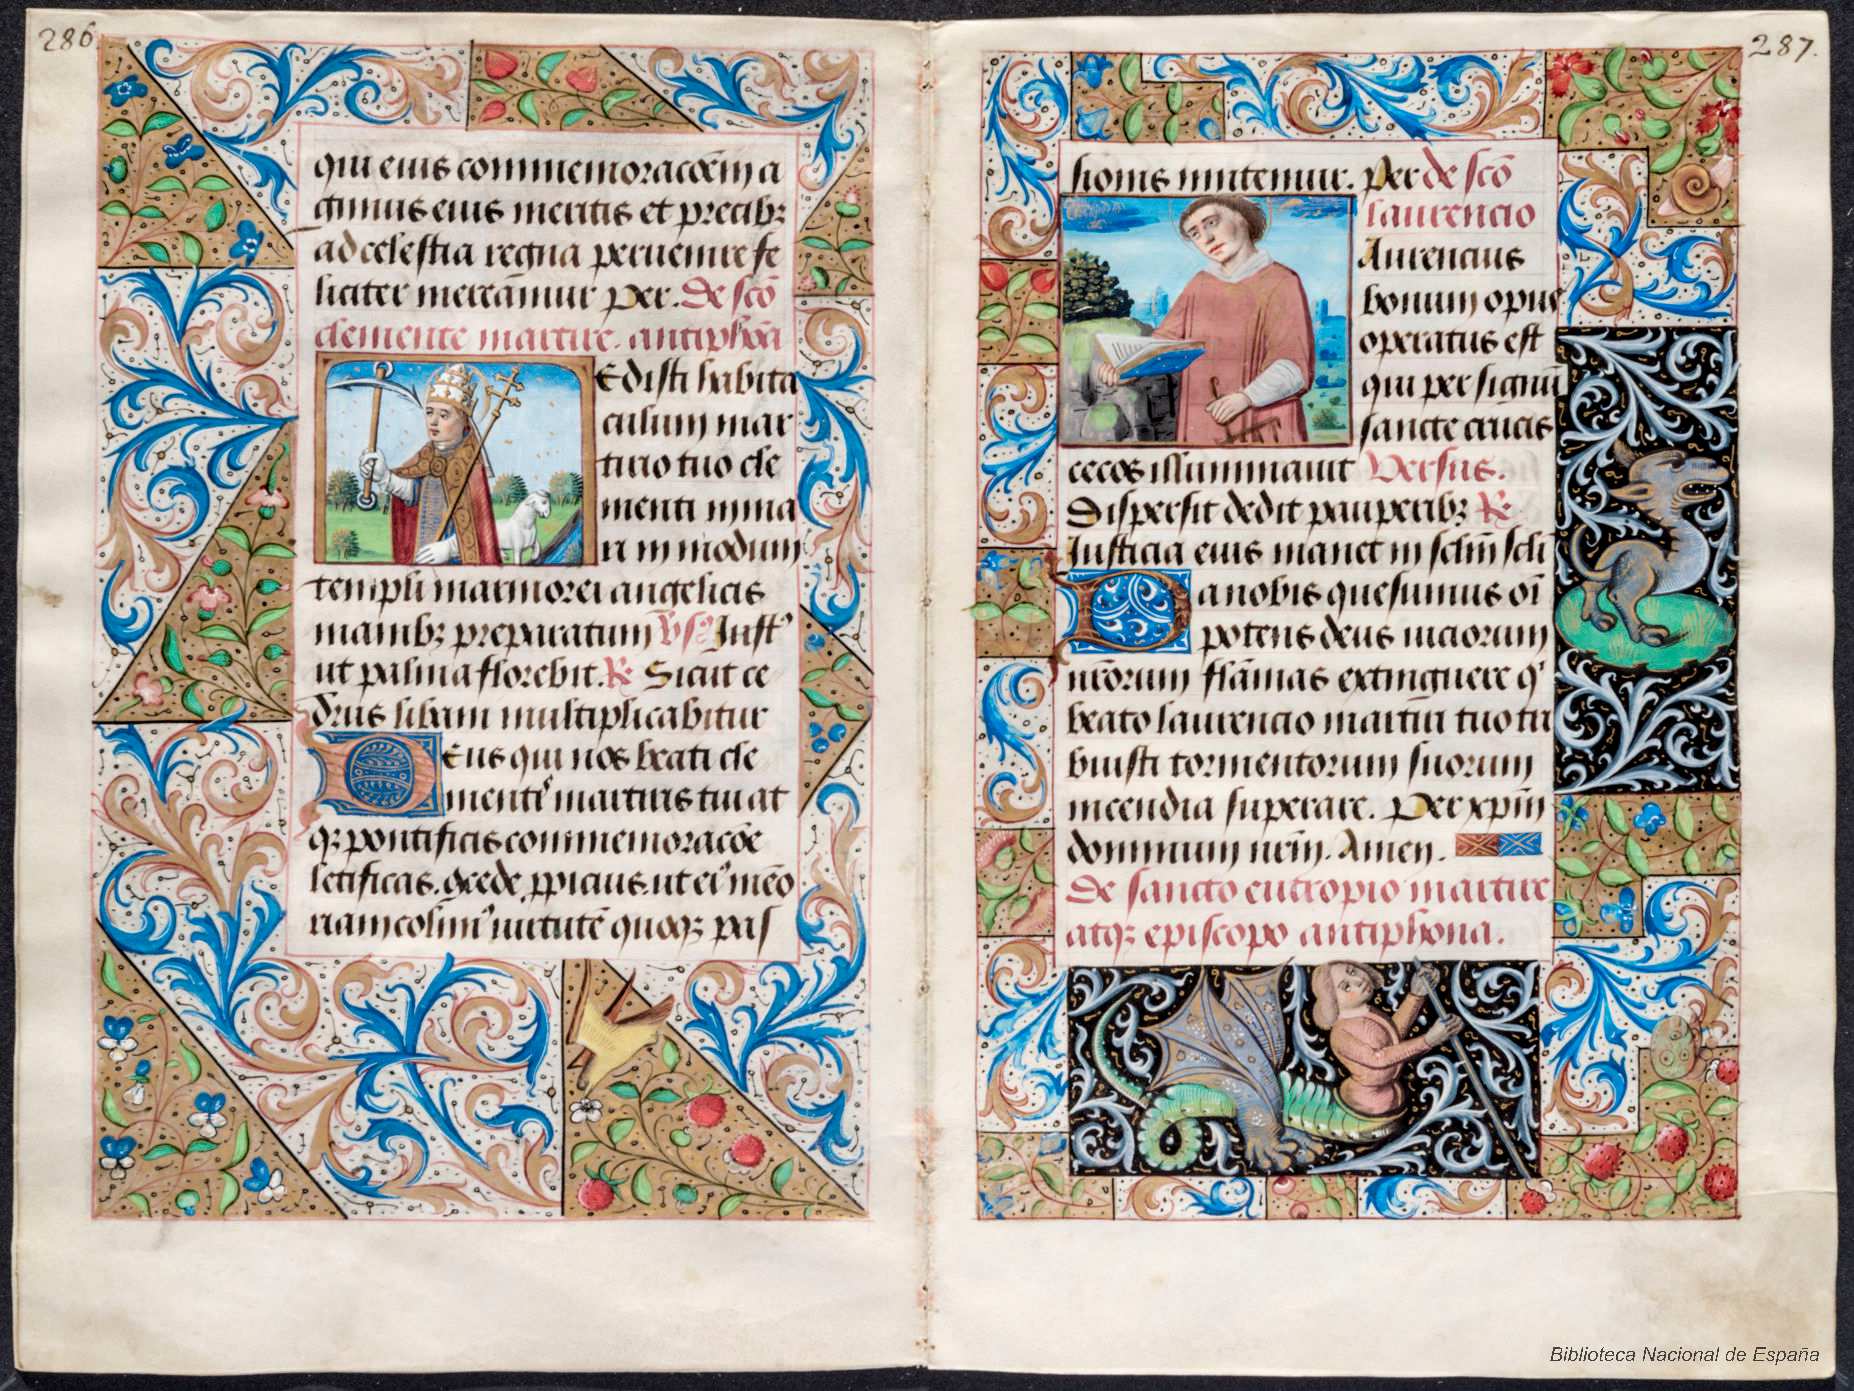 286
qui eius commemoracoēm a
gimus eius meritis et precibꝫ
ad celestia regna peruenire fe
liciter mereamur Per. De sco
clemente martire. antiphōa
Edisti habita
culum mar
tirio tuo cle
menti in ma
ri in modum
templi marmorei angelicis
manibꝫ preparatum Vs Just
ut palma florebit. Re Sicut ce
drus libani multiplicabitur
Eus qui nos beati cle
mentis martiris tui at
qꝫ pontificis commemoracōe
letificas. gcede, ppicius. ut ei meo
riam colim virtutē quoqꝫ pas
287.
sionis imitemur. Per de sco
laurencio
Aurencius
bonum opus
operatus est
qui per signū
sancte crucis
cecos illuminauit Versus.
Dispersit dedit pauperibꝫ Re
Justicia eius manet in sclm scli
Da nobis quesumus oī
potens deus uiciorum
nrorum flāmas extinguere q
beato laurencio martiri tuo tri
buisti tormentorum suorum
incendia superare. Per xpm
dominum nrm. Amen.
De sancto eutropio martire
atqꝫ episcopo antiphona.
Biblioteca Nacional de España